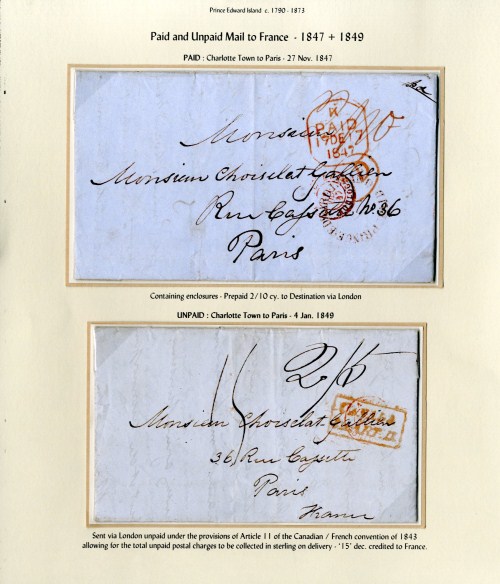 Prince Edward Island c. 1790 - 1873
Paid and Unpaid Mail to France - 1847 + 1849
PAID : Charlotte Town to Paris - 27 Nov. 1847
K
PAID
17 DE 17
1847
Monsieur
Monsieur Choiselat Gallien
Rue Cassette No. 36
Paris
Containing enclosures - Prepaid 2/10 cy. to Destination via London
UNPAID : Charlotte Town to Paris - 4 Jan. 1849
15
Monsieur Choiselat Gallien
36, Rue Cassette
Paris
France
Sent via London unpaid under the provisions of Article 11 of the Canadian / French convention of 1843
allowing for the total unpaid postal charges to be collected in sterling on delivery - '15' dec. credited to France.